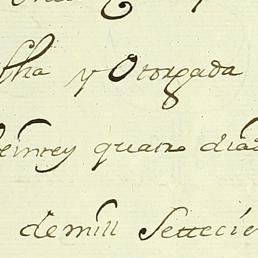 fha y Otorgada
veinrey quatro dias
demill Settecie